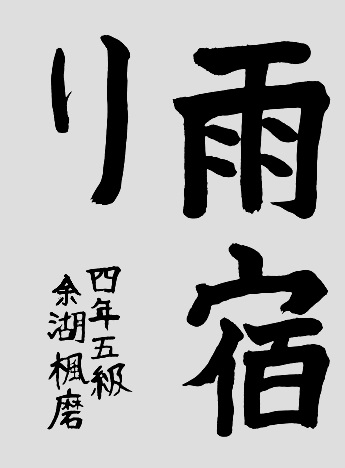 雨宿
り
四年五級
余湖楓磨